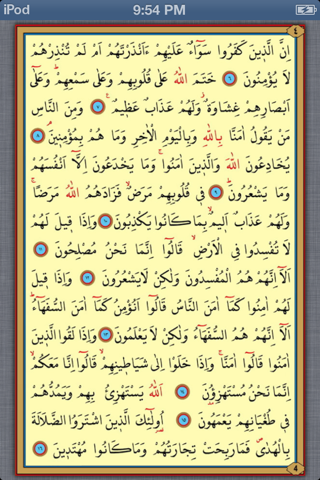 iPod 9:54 PM
٤
اِنَّ الَّذٖينَ كَفَرُوا سَوَٓاءٌ عَلَيْهِمْ ءَاَنْذَرْتَهُمْ اَمْ لَمْ تُنْذِرْهُمْ
لَا يُؤْمِنُونَ ﴿٦﴾ خَتَمَ اللّٰهُ عَلٰى قُلُوبِهِمْ وَعَلٰى سَمْعِهِمْ وَعَلٰٓى
اَبْصَارِهِمْ غِشَاوَةٌ وَلَهُمْ عَذَابٌ عَظٖيمٌ ﴿٧﴾ وَمِنَ النَّاسِ
مَنْ يَقُولُ اٰمَنَّا بِاللّٰهِ وَبِالْيَوْمِ الْاٰخِرِ وَمَا هُمْ بِمُؤْمِنٖينَ ﴿٨﴾
يُخَادِعُونَ اللّٰهَ وَالَّذٖينَ اٰمَنُوا وَمَا يَخْدَعُونَ اِلَّٓا اَنْفُسَهُمْ
وَمَا يَشْعُرُونَ ﴿٩﴾ فٖى قُلُوبِهِمْ مَرَضٌ فَزَادَهُمُ اللّٰهُ مَرَضًا
وَلَهُمْ عَذَابٌ اَلٖيمٌ بِمَا كَانُوا يَكْذِبُونَ ﴿١٠﴾ وَاِذَا قٖيلَ لَهُمْ
لَا تُفْسِدُوا فِى الْاَرْضِ قَالُٓوا اِنَّمَا نَحْنُ مُصْلِحُونَ ﴿١١﴾
اَلَٓا اِنَّهُمْ هُمُ الْمُفْسِدُونَ وَلٰكِنْ لَا يَشْعُرُونَ ﴿١٢﴾ وَاِذَا قٖيلَ
لَهُمْ اٰمِنُوا كَمَٓا اٰمَنَ النَّاسُ قَالُٓوا اَنُؤْمِنُ كَمَٓا اٰمَنَ السُّفَهَٓاءُ
اَلَٓا اِنَّهُمْ هُمُ السُّفَهَٓاءُ وَلٰكِنْ لَا يَعْلَمُونَ ﴿١٣﴾ وَاِذَا لَقُوا الَّذٖينَ
اٰمَنُوا قَالُٓوا اٰمَنَّا وَاِذَا خَلَوْا اِلٰى شَيَاطٖينِهِمْ قَالُٓوا اِنَّا مَعَكُمْ
اِنَّمَا نَحْنُ مُسْتَهْزِؤُنَ ﴿١٤﴾ اَللّٰهُ يَسْتَهْزِئُ بِهِمْ وَيَمُدُّهُمْ
فٖى طُغْيَانِهِمْ يَعْمَهُونَ ﴿١٥﴾ اُولٰٓئِكَ الَّذٖينَ اشْتَرَوُا الضَّلَالَةَ
بِالْهُدٰى فَمَا رَبِحَتْ تِجَارَتُهُمْ وَمَا كَانُوا مُهْتَدٖينَ ﴿١٦﴾
4